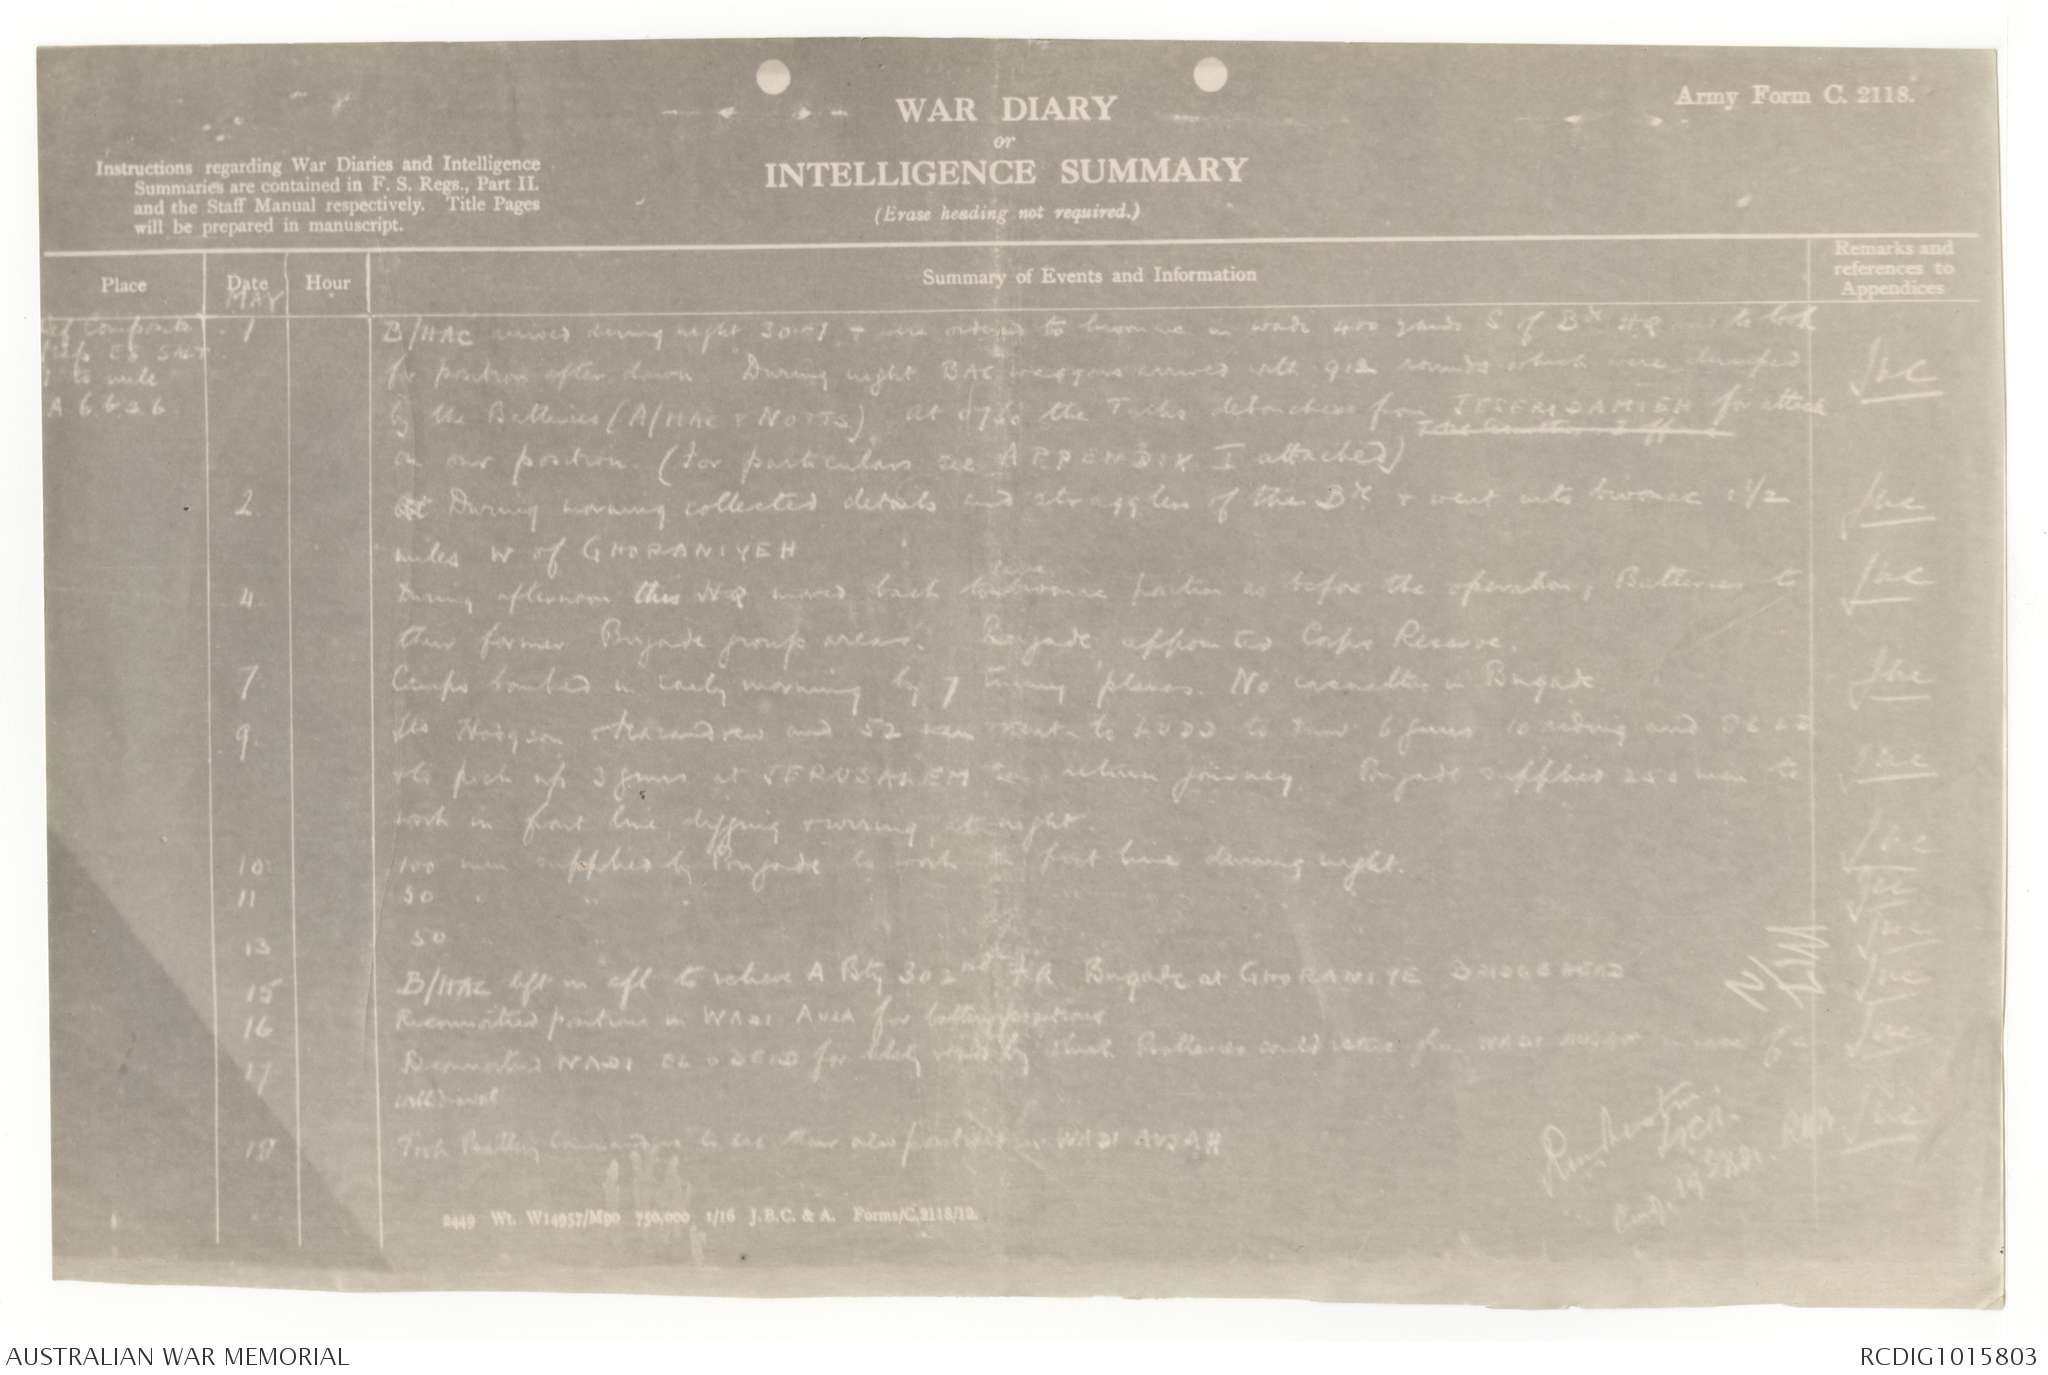 Army Form C. 2118.
WAR DIARY
or
INTELLIGENCE SUMMARY
(Erase heading not required.)
Instructions regarding War Diaries and Intelligence
Summaries are contained in F. S. Regs., Part II.
and the Staff Manual respectively. Title Pages
will be prepared in manuscript.
Place
Date
MAY
Hour
Summary of Events and Information
Remarks and
references to
Appendices
Map ES SALT
1 to mile
A 6 b 2 6
1 B/HAC arrived during night 30th/1 & were ordered to bivouac in wadi 400 yards S of Bde HQ to look
for position after dawn During night BAC waggons arrived with 912 rounds which were dumped
by the Batteries (A/HAC & NOTTS) at 0730 the Turks debouched from for attack
on our position. (For particulars see APPENDIX I attached)
2 During morning collected details and stragglers of the Bde & went into bivouac 1 1/2
miles W of GHORANIYEH
4 During afternoon this HQ moved back to same bivouac position as before the operations, Batteries to
their former Brigade group areas. Brigade appointed Corps Reserve.
7 Camps bombed in early morning by 7 enemy planes. No casualties in Brigade
9 Hodgson and 52 men went to LUDD to draw 6 guns 10 riding and
to pick up 3 guns at JERUSALEM on return journey. Brigade supplied 250 men to
work in front line, digging & wiring, at night.
10 100 men supplied by Brigade to work in front line during night.
11 50 " " "
13 50 "
15 B/HAC left in aft to relieve A Bty 302nd Brigade at GHORANIYE BRIDGEHEAD
16 Reconnoitred positions in WADI AUJA for battery positions
17 Reconnoitred WADI EL OBEID for likely roads by which Batteries could retire from WADI in case of a
withdrawal
18 Took Battery Commanders to see their new positions in WADI AUJAH
2449 Wt. W14957/M90 750,000 1/16 J.B.C. & A. Forms/C.2118/12.
AUSTRALIAN WAR MEMORIAL
RCDIG1015803